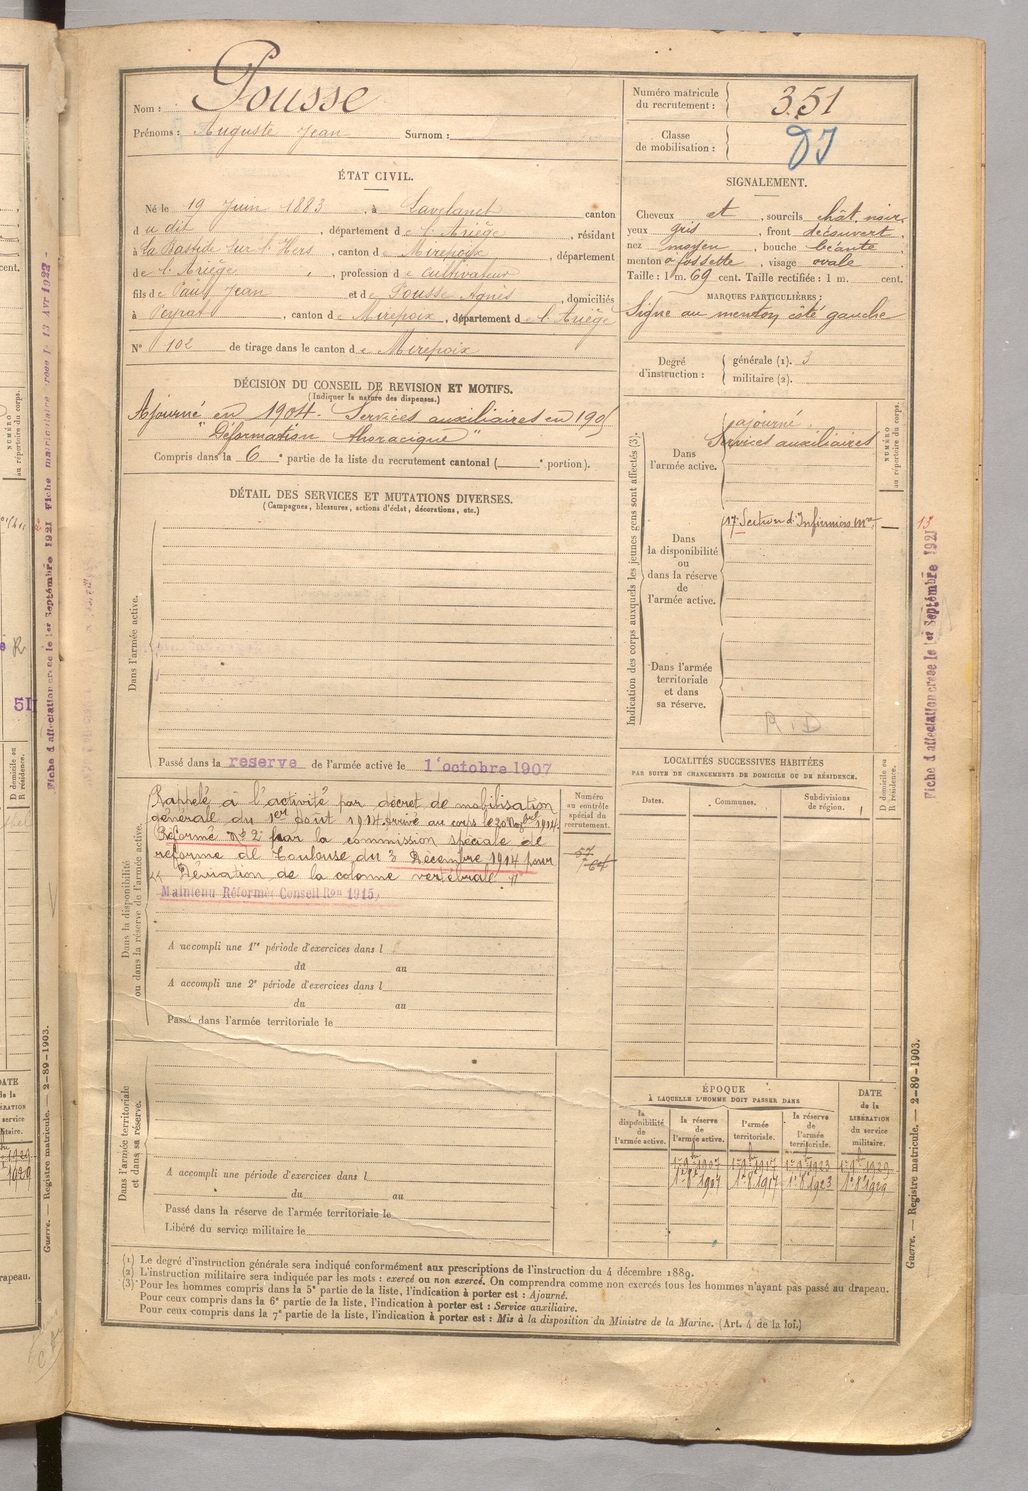 Nom : Pousse
Prénoms : Auguste Jean Surnom :
Numéro matricule du recrutement : 351
Classe de mobilisation :
ÉTAT CIVIL.
Né le 19 Juin 1883, à Lavelanet canton
du dit, département de l'Ariège, résidant
à La Bastide sur l'Hers, canton de Mirepoix, département
de l'Ariège, profession de cultivateur
fils de Paul Jean et de Pousse Agnès, domiciliés
à Peyrat, canton de Mirepoix, département de l'Ariège
N° 102 de tirage dans le canton de Mirepoix
SIGNALEMENT.
Cheveux et, sourcils chât. noir
yeux gris, front découvert
nez moyen, bouche béante
menton à fossette, visage ovale
Taille : 1 m. 69 cent. Taille rectifiée : 1 m. cent.
MARQUES PARTICULIÈRES :
Signe au menton côté gauche
Degré d'instruction : générale (1). 3
militaire (2).
DÉCISION DU CONSEIL DE REVISION ET MOTIFS.
(Indiquer la nature des dispenses.)
Ajourné en 1904. Services auxiliaires en 1905
"Déformation thoracique"
Compris dans la 6e partie de la liste du recrutement cantonal ( e portion).
DÉTAIL DES SERVICES ET MUTATIONS DIVERSES.
(Campagnes, blessures, actions d'éclat, décorations, etc.)
Dans l'armée active.
Passé dans la réserve de l'armée active le 1er octobre 1907
Indication des corps auxquels les jeunes gens sont affectés (3).
NUMÉRO au répertoire du corps.
Dans l'armée active.
ajourné
Services auxiliaires
Dans la disponibilité ou dans la réserve de l'armée active.
17e Section d'Infirmiers Mres
13
Dans l'armée territoriale et dans sa réserve.
R. D
Fiche d'affectation créée le 1er Septembre 1921
Dans la disponibilité ou dans la réserve de l'armée active.
Rappelé à l'activité par décret de mobilisation
générale du 1er Août 1914. Arrivé au corps le 20 Novbre 1914.
Réformé N° 2 par la commission spéciale de
réforme de Toulouse du 3 Décembre 1914 pour
"Déviation de la colonne vertébrale"
Maintenu Réformé Conseil Ron 1915
Numéro au contrôle spécial du recrutement.
A accompli une 1re période d'exercices dans l
du au
A accompli une 2e période d'exercices dans l
du au
Passé dans l'armée territoriale le
LOCALITÉS SUCCESSIVES HABITÉES
PAR SUITE DE CHANGEMENTS DE DOMICILE OU DE RÉSIDENCE.
Dates. Communes. Subdivisions de région. D domicile ou R résidence.
Dans l'armée territoriale et dans sa réserve.
A accompli une période d'exercices dans l
du au
Passé dans la réserve de l'armée territoriale le
Libéré du service militaire le
ÉPOQUE
À LAQUELLE L'HOMME DOIT PASSER DANS
la disponibilité de l'armée active. la réserve de l'armée active. l'armée territoriale. la réserve de l'armée territoriale. DATE de la LIBÉRATION du service militaire.
1907 1917 1923 1929
1907 1917 1923 1929
(1) Le degré d'instruction générale sera indiqué conformément aux prescriptions de l'instruction du 4 décembre 1889.
(2) L'instruction militaire sera indiquée par les mots : exercé ou non exercé. On comprendra comme non exercés tous les hommes n'ayant pas passé au drapeau.
(3) Pour les hommes compris dans la 5e partie de la liste, l'indication à porter est : Ajourné.
Pour ceux compris dans la 6e partie de la liste, l'indication à porter est : Service auxiliaire.
Pour ceux compris dans la 7e partie de la liste, l'indication à porter est : Mis à la disposition du Ministre de la Marine. (Art. 4 de la loi.)
Guerre. — Registre matricule. — 2-89-1903.